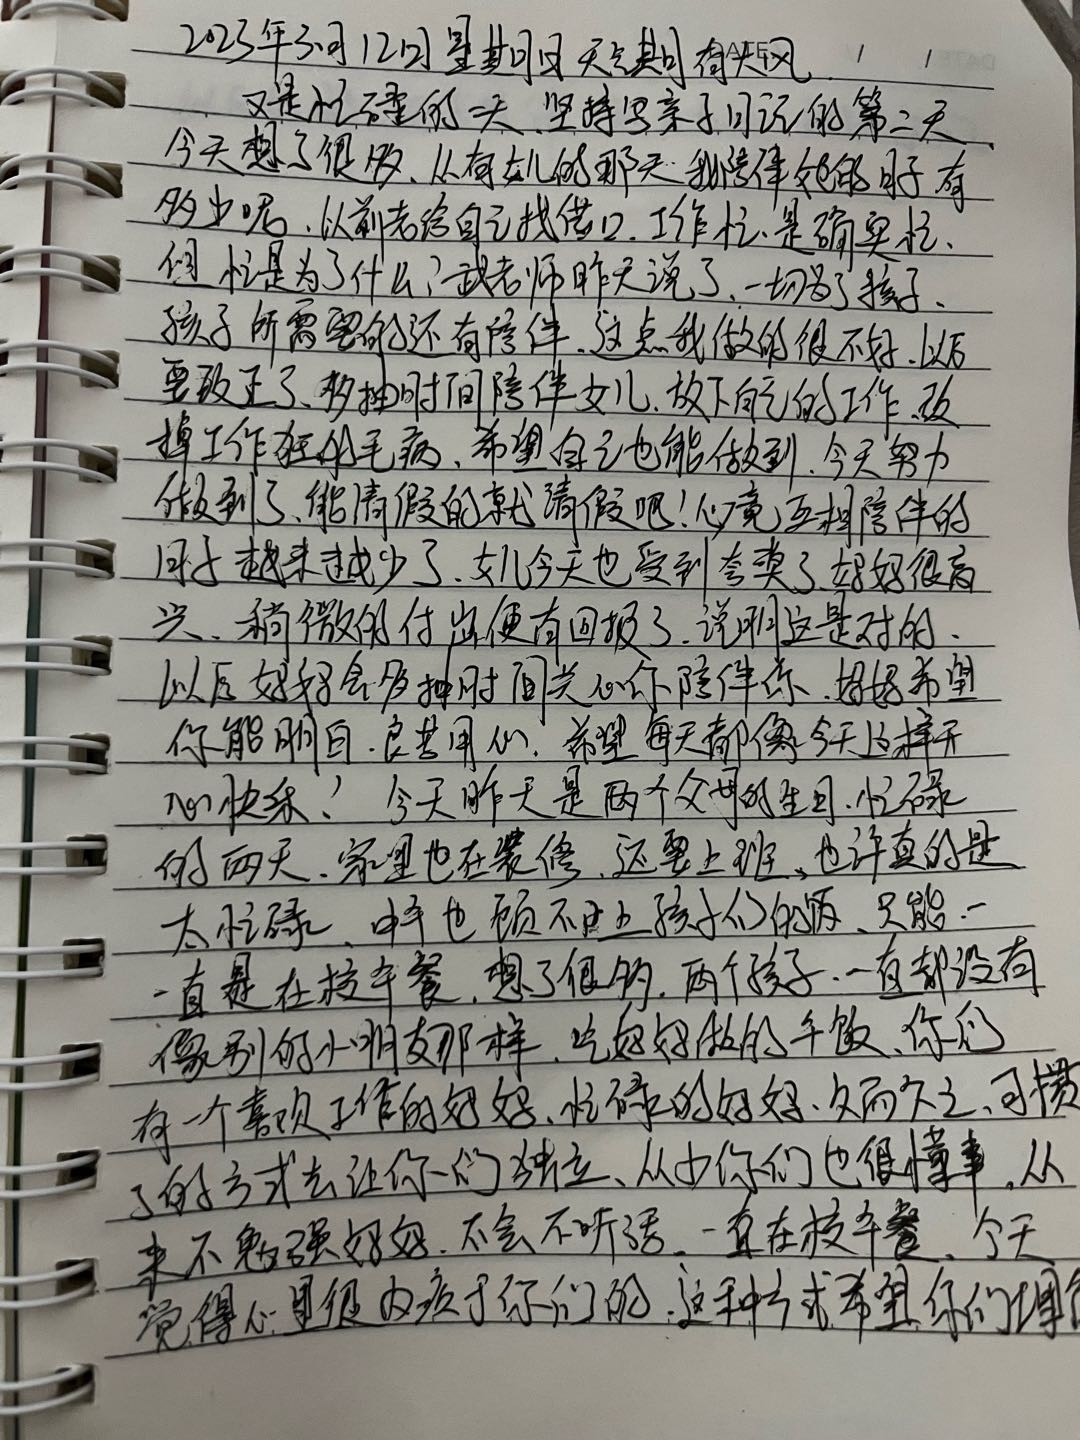 2023年3月12日 星期日 天气晴 有大风
DATE / /
又是忙碌的一天、坚持写亲子日记的第二天
今天想了很多、从有女儿的那天 我陪伴她的日子有
多少呢、以前老给自己找借口、工作忙、是确实忙、
但忙是为了什么？武老师昨天说了、一切为了孩子、
孩子所需要的还有陪伴、这点我做的很不好、以后
要改正了、多抽时间陪伴女儿、放下自己的工作、改
掉工作狂的毛病、希望自己也能做到、今天努力
做到了、能请假的就请假吧！必竟互相陪伴的
日子越来越少了、女儿今天也受到夸奖了 妈妈很高
兴、稍微的付出便有回报了、说明这是对的、
以后妈妈会多抽时间关心你陪伴你、妈妈希望
你能明白、良苦用心、希望每天都像今天这样开
心快乐！ 今天昨天是两个父母的生日、忙碌
的两天、家里也在装修、还要上班、也许真的是
太忙碌、中午也顾不上孩子们的饭、只能一
一直是在校午餐、想了很多、两个孩子、一直都没有
像别的小朋友那样、吃妈妈做的午饭、你们
有一个喜欢工作的妈妈、忙碌的妈妈、久而久之、习惯
了的方式去让你们独立、从小你们也很懂事、从
来不勉强妈妈、不会不听话、一直在校午餐、今天
觉得心里很内疚于你们的、这种方式希望你们理